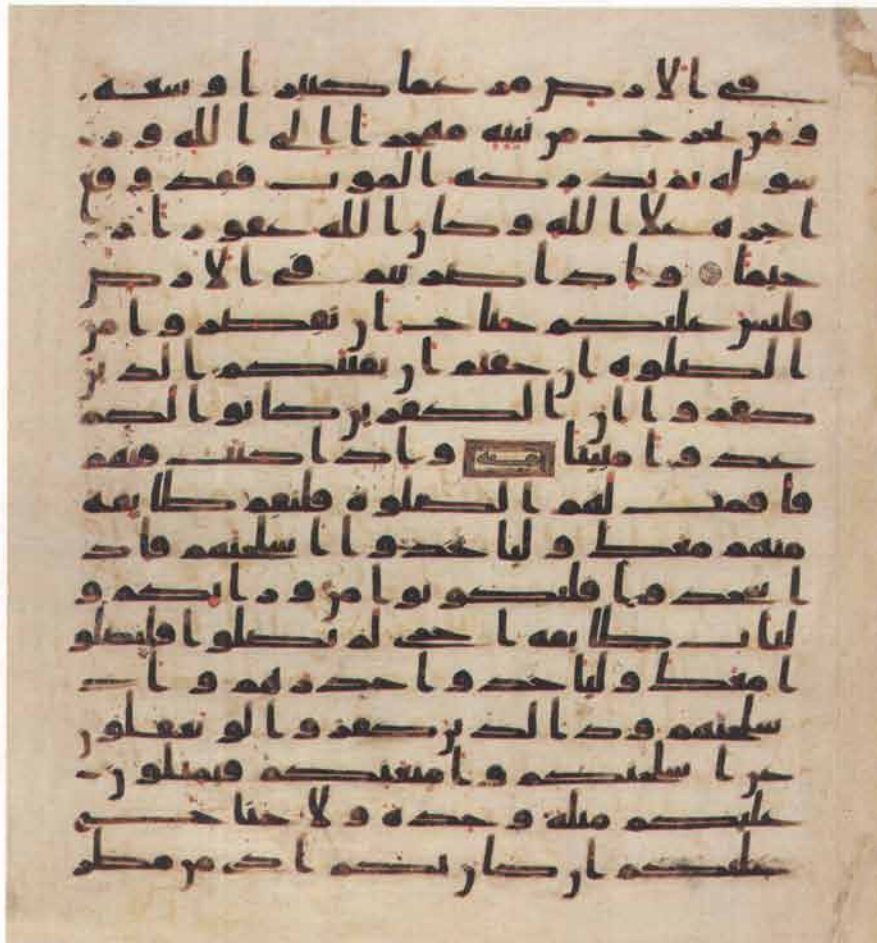 في الارض مرغما كثيرا وسعة
ومن يخرج من بيته مهجرا الى الله ور
سوله ثم يدركه الموت فقد وقع
اجره على الله وكان الله غفورا ر
حيما واذا ضربتم في الارض
فليس عليكم جناح ان تقصروا من
الصلوة ان خفتم ان يفتنكم الذين
كفروا ان الكفرين كانوا لكم
عدوا مبينا واذا كنت فيهم
فاقمت لهم الصلوة فلتقم طايفة
منهم معك ولياخذوا اسلحتهم فاذ
ا سجدوا فليكونوا من ورايكم و
لتات طايفة اخرى لم يصلوا فليصلو
ا معك ولياخذوا حذرهم وا
سلحتهم ود الذين كفروا لو تغفلون
عن اسلحتكم وامتعتكم فيميلون
عليكم ميلة وحدة ولا جناح
عليكم ان كان بكم اذى من مطر